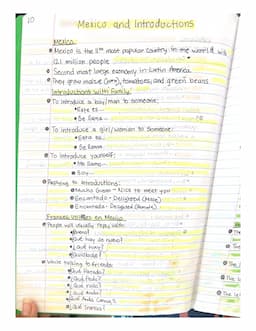 10
Mexico and Introductions
Mexico
Mexico is the 11th most popular country in the world with
121 million people
Second most large economy in Latin America
They grow maize (corn), tomatoes, and green beans
Introductions with Family:
To introduce a boy/man to someone:
Este es
Se llama
To introduce a girl/woman to someone:
Esta es
Se llama
To introduce yourself:
Me llamo
Soy
Replying to introductions:
Mucho Gusto - Nice to meet you
Encantado - Delighted (Male)
Encantada - Delighted (Female)
Frases utiles en Mexico
People will usually reply with:
¿Qué hay de nuevo?
¿Qué hay?
While talking to friends:
¿Qué Pasada?
¿Qué Padre?
¿Qué onda?